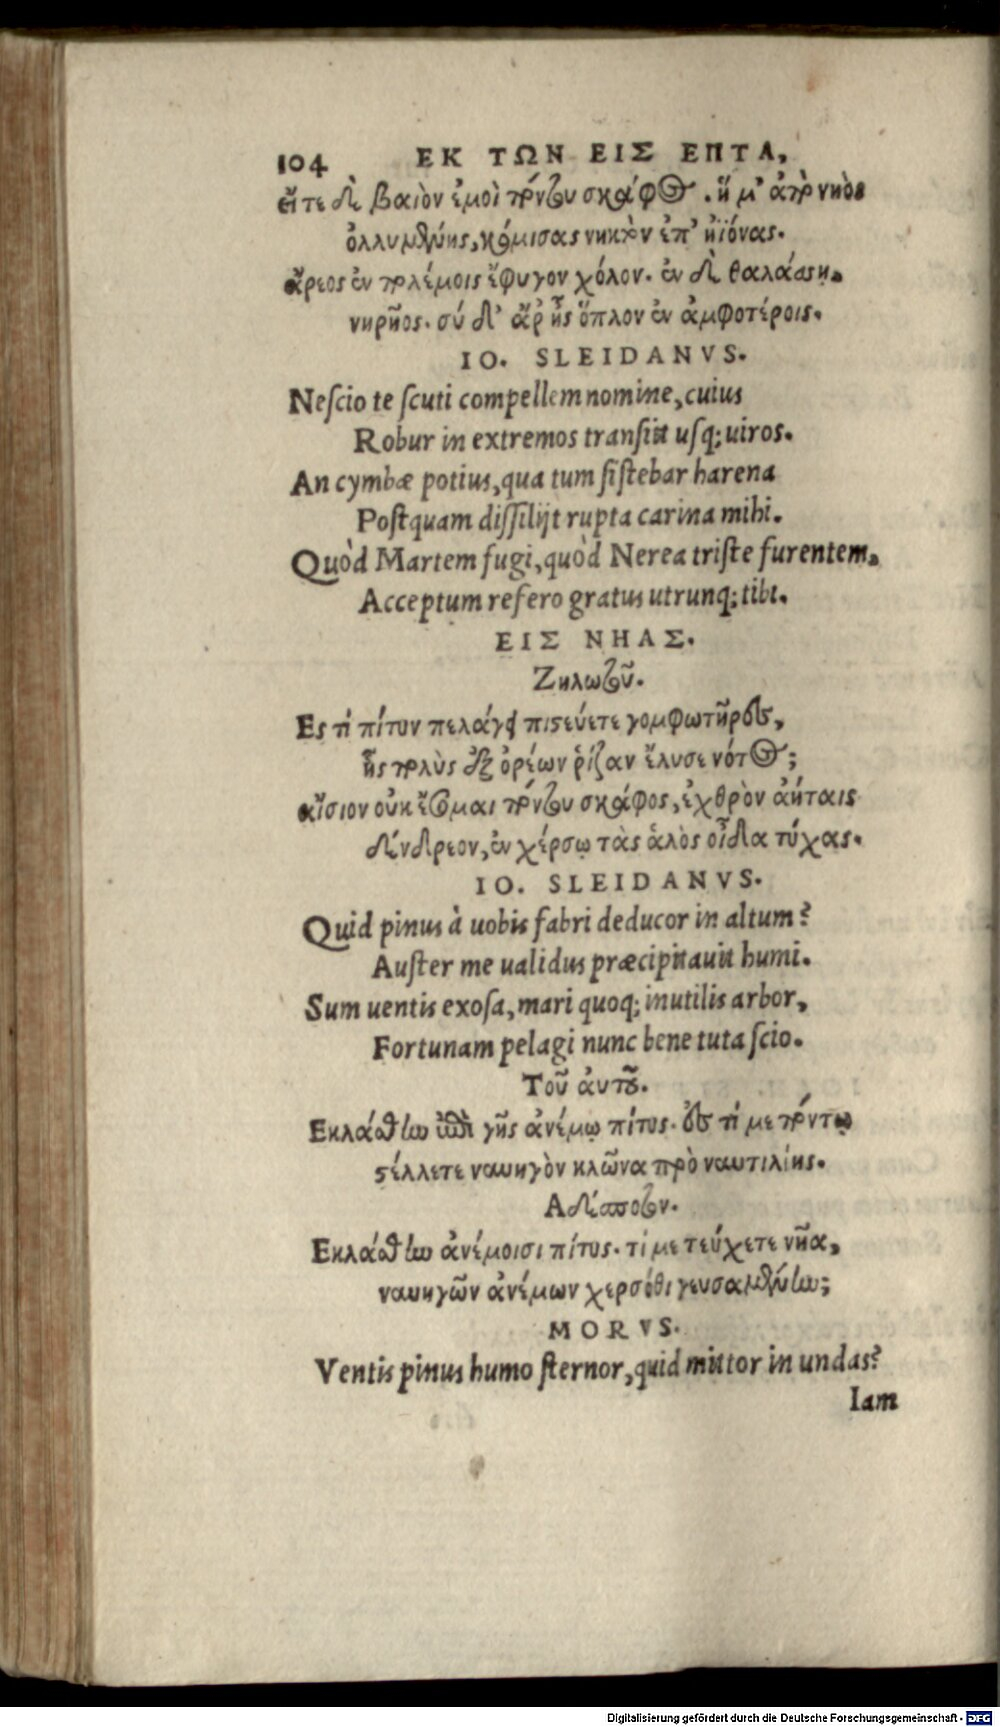 104 ΕΚ ΤΩΝ ΕΙΣ ΕΠΤΑ,
εἴτε δὲ βαιὸν ἐμοὶ πόντου σκάφος. ἥ μ' ἀπὸ νηὸς
ὀλλυμένης, κόμισας νηκτὸν ἐπ' ἠϊόνας.
ἄρεος ἐν πολέμοις ἔφυγον χόλον. ἐν δὲ θαλάσσῃ
νηρῆος. σύ δ' ἄρ' ἦς ὅπλον ἐν ἀμφοτέροις.
IO. SLEIDANVS.
Neſcio te ſcuti compellem nomine, cuius
Robur in extremos tranſiit uſq; uiros.
An cymbæ potius, qua tum ſiſtebar harena
Poſtquam diſſilijt rupta carina mihi.
Quòd Martem fugi, quòd Nerea triſte furentem.
Acceptum refero gratus utrunq; tibi.
ΕΙΣ ΝΗΑΣ.
Ζηλωτοῦ.
Ες τί πίτυν πελάγει πιστεύετε γομφωτῆρες,
ἧς πολὺς ἐξ ὀρέων ῥίζαν ἔλυσε νότος;
αἴσιον οὐκ ἔσομαι πόντου σκάφος, ἐχθρὸν ἀήταις
δένδρεον, ἐν χέρσῳ τὰς ἁλὸς οἶδα τύχας.
IO. SLEIDANVS.
Quid pinus à uobis fabri deducor in altum?
Auſter me ualidus præcipitauit humi.
Sum uentis exoſa, mari quoq; inutilis arbor,
Fortunam pelagi nunc bene tuta ſcio.
Τοῦ ἀυτοῦ.
Εκλάσθην ἐπὶ γῆς ἀνέμῳ πίτυς. ἐς τί με πόντῳ
στέλλετε ναυηγὸν κλῶνα πρὸ ναυτιλίης.
Αδέσποτον.
Εκλάσθην ἀνέμοισι πίτυς. τί με τεύχετε νῆα,
ναυηγῶν ἀνέμων χερσόθι γευσαμένην;
MORVS.
Ventis pinus humo ſternor, quid mittor in undas?
Iam
Digitalisierung gefördert durch die Deutsche Forschungsgemeinschaft - DFG